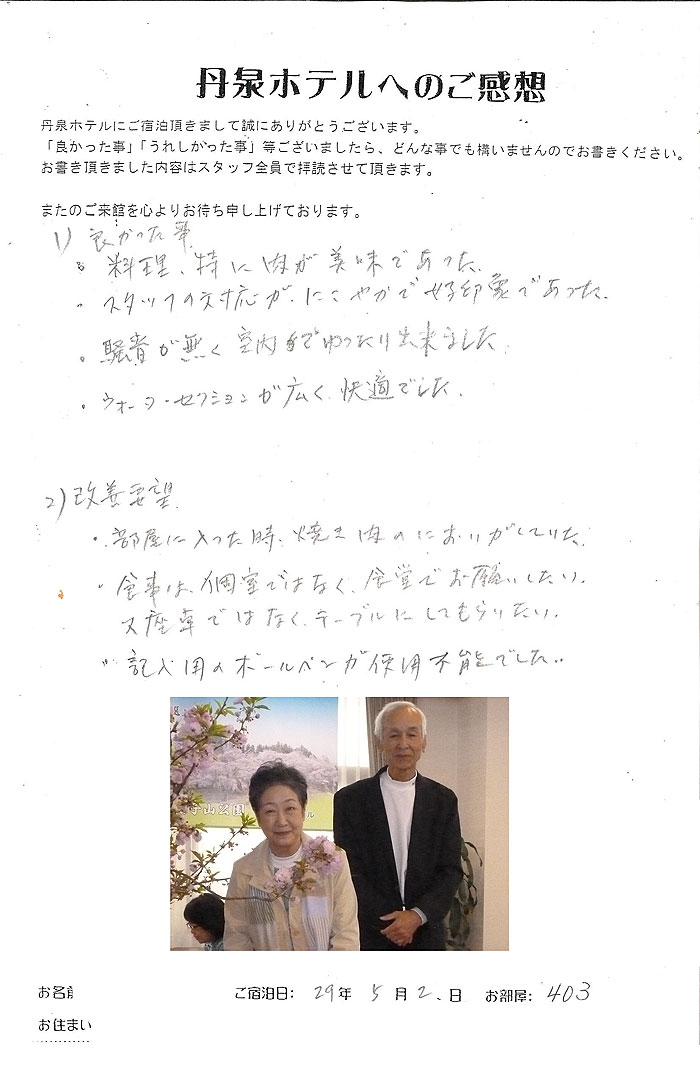 丹泉ホテルへのご感想
丹泉ホテルにご宿泊頂きまして誠にありがとうございます。
「良かった事」「うれしかった事」等ございましたら、どんな事でも構いませんのでお書きください。
お書き頂きました内容はスタッフ全員で拝読させて頂きます。
またのご来館を心よりお待ち申し上げております。
1) 良かった事
・料理、特に肉が美味であった.
・スタッフの対応が、にこやかで好印象であった.
・騒音が無く室内でゆったり出来ました
・ウォーター・セクションが広く、快適でした.
2) 改善要望
・部屋に入った時、焼き肉のにおいがしていた.
・食事は、個室ではなく、食堂でお願いしたい.
又座卓ではなく、テーブルにしてもらいたい.
・記入用のボールペンが使用不能でした..
山公園
ル
お名前
ご宿泊日: 29年 5月 2、日 お部屋: 403
お住まい